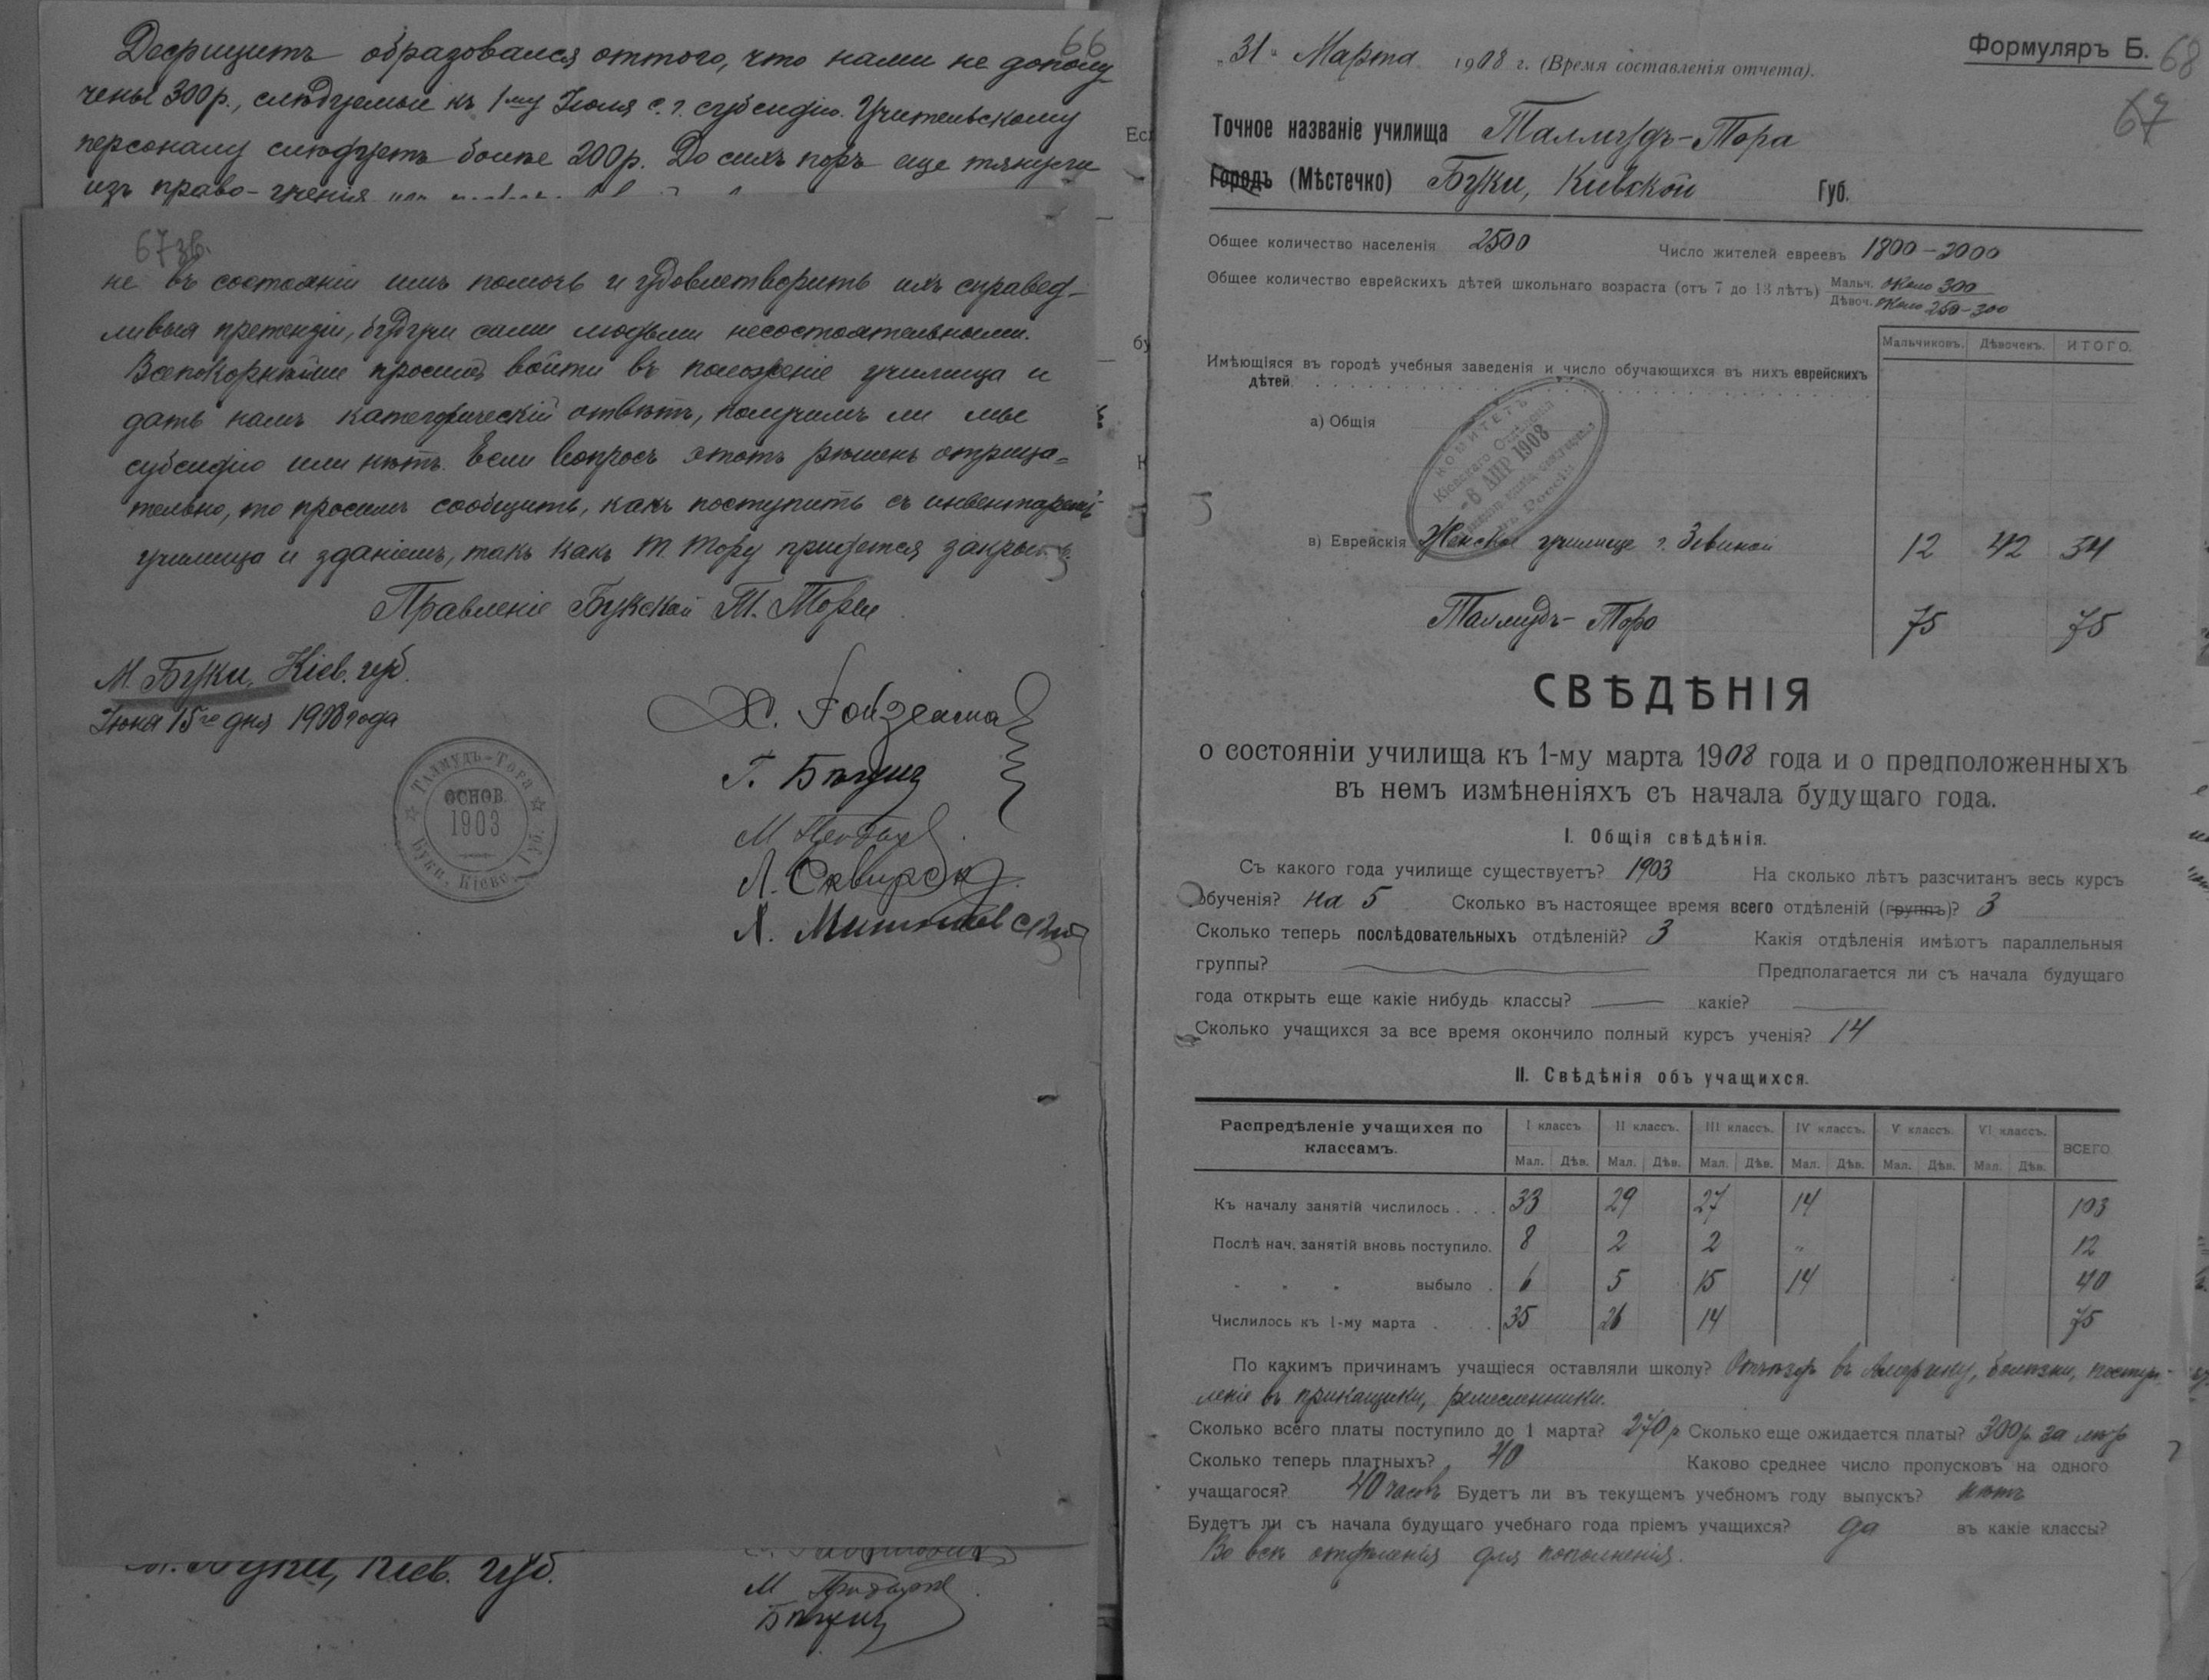 66
Дефицитъ образовался оттого, что нами не дополу
чены 300 р., слѣдуемые къ 1му Іюля с. г. субсидіи. Учительскому
персоналу слѣдуетъ болѣе 200 р. До сихъ поръ еще тянули
изъ право-ученія
67зв.
не въ состояніи имъ помочь и удовлетворить ихъ справед-
ливыя претензіи, будучи сами людьми несостоятельными.
Всепокорнѣйше просимъ войти въ положеніе училища и
дать намъ категорическій отвѣтъ, получимъ ли мы
субсидію или нѣтъ. Если вопросъ этотъ рѣшенъ отрица-
тельно, то просимъ сообщить, какъ поступить съ инвентаремъ
училища и зданіемъ, такъ какъ Т. Тору придется закрыть.
Правленіе Букской Т. Торы
М. Буки, Кіев. губ.
Іюня 15го дня 1908 года
Талмудъ-Тора
Основ.
1903
Буки, Кіевс. Губ.
М. Буки, Кіев. губ.
Формуляръ Б.
68
67
„31“ Марта 1908 г. (Время составленія отчета).
Точное названіе училища Талмудъ-Тора
Городъ (Мѣстечко) Буки, Кіевской Губ.
Общее количество населенія 2500 Число жителей евреевъ 1800-2000
Общее количество еврейскихъ дѣтей школьнаго возраста (отъ 7 до 13 лѣтъ) Мальч. около 300
Дѣвоч. около 250-300
Мальчиковъ. Дѣвочекъ. ИТОГО.
Имѣющіяся въ городѣ учебныя заведенія и число обучающихся въ нихъ еврейскихъ
дѣтей
а) Общія
КОМИТЕТЪ
Кіевскаго Отдѣленія
-8 АПР 1908
въ Россіи
в) Еврейскія Женское училище г. Зевиной 12 42 54
Талмудъ-Тора 75 75
СВѢДѢНІЯ
о состояніи училища къ 1-му марта 1908 года и о предположенныхъ
въ немъ измѣненіяхъ съ начала будущаго года.
I. Общія свѣдѣнія.
Съ какого года училище существуетъ? 1903 На сколько лѣтъ разсчитанъ весь курсъ
обученія? на 5 Сколько въ настоящее время всего отдѣленій (группъ)? 3
Сколько теперь послѣдовательныхъ отдѣленій? 3 Какія отдѣленія имѣютъ параллельныя
группы? Предполагается ли съ начала будущаго
года открыть еще какіе нибудь классы? — какіе? —
Сколько учащихся за все время окончило полный курсъ ученія? 14
II. Свѣдѣнія объ учащихся.
Распредѣленіе учащихся по классамъ. I классъ II классъ. III классъ. IV классъ. V классъ. VI классъ. ВСЕГО.
Мал. Дѣв. Мал. Дѣв. Мал. Дѣв. Мал. Дѣв. Мал. Дѣв. Мал. Дѣв.
Къ началу занятій числилось . . . 33 29 27 14 103
Послѣ нач. занятій вновь поступило. 8 2 2 „ 12
" " " выбыло . 6 5 15 14 40
Числилось къ 1-му марта . . . 35 26 14 75
По какимъ причинамъ учащіеся оставляли школу? Отъѣздъ въ Америку, болѣзни, поступ-
леніе въ прикащики, ремесленники.
Сколько всего платы поступило до 1 марта? 270 р Сколько еще ожидается платы? 300 р. за лѣт
Сколько теперь платныхъ? 40 Каково среднее число пропусковъ на одного
учащагося? 40 часовъ Будетъ ли въ текущемъ учебномъ году выпускъ? нѣтъ
Будетъ ли съ начала будущаго учебнаго года пріемъ учащихся? да въ какіе классы?
Во всѣ отдѣленія для пополненія.